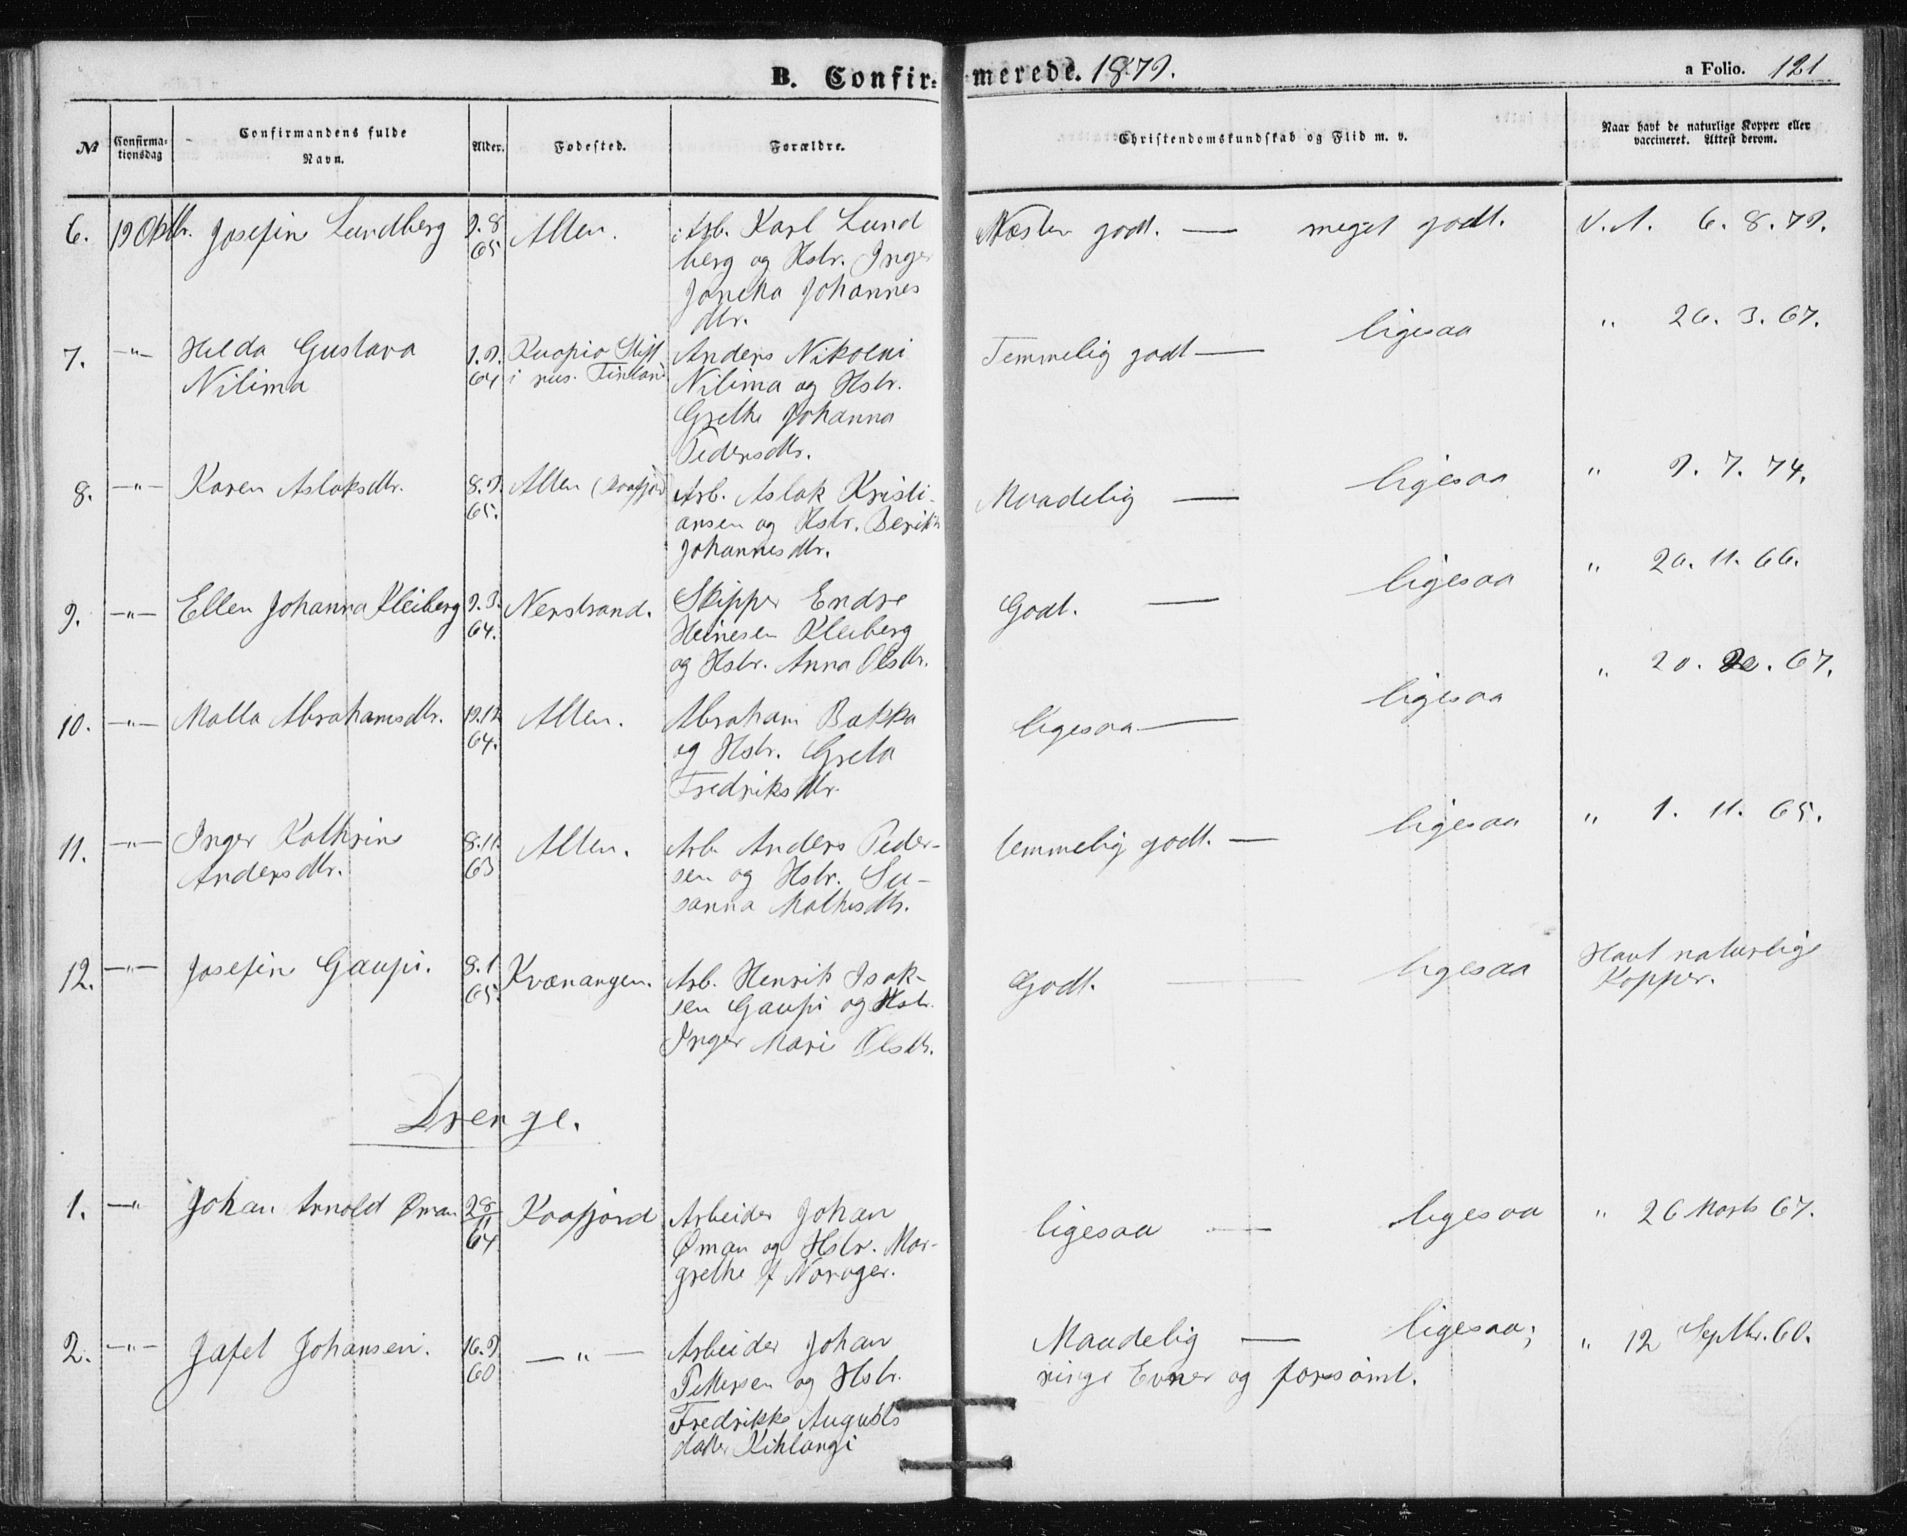 B. Confir- merede. 1879. a Folio. 121
№ Confirma-tionsdag Confirmandens fulde Navn. Alder. Fødested. Forældre. Christendomskundskab og Flid m. v. Naar havt de naturlige Kopper eller vaccineret. Attest derom.
6. 19 Oktbr. Josefine Lundberg 9.8 Alten. Arb. Karl Lund Næsten godt. — meget godt. V. A. 6. 8. 79.
65 berg og Hstr. Inger
Johannes
dtr.
7. —"— Hilda Gustava 1.9. Kuopio Stift Anders Nikolai Temmelig godt — ligesaa " 26. 3. 67.
Nilima 64 i rus. Finland Nilima og Hstr.
Grethe Johanna
Pedersdtr.
8. —"— Karen Aslaksdtr. 8.9. Alten (Kaafjord) Arb. Aslak Kristi- Maadelig — ligesaa " 9. 7. 74.
65. ansen og Hstr. Berith
Johannesdtr.
9. —"— Ellen Johanna Kleiberg 9.3. Nerstrand. Skipper Endre Godt. — ligesaa " 20. 11. 66.
64. Heinesen Kleiberg
og Hstr. Anna Olsdtr.
10. —"— Malla Abrahamsdtr. 19.12 Alten. Abraham Bakka ligesaa — ligesaa " 20. 67.
64. og Hstr. Greta
Fredriksdtr.
11. —"— Inger Kathrine 8.11. Alten. Arb. Anders Peder- temmelig godt. — ligesaa " 1. 11. 65.
Andersdtr. 63 sen og Hstr. Su-
sanna Mathisdtr.
12. —"— Josefine Gaupi. 8.1 Kvænangen. Arb. Henrik Isak- Godt. — ligesaa Havt naturlige
65. sen Gaupi og Hstr. Kopper.
Inger Marie Olsdtr.
Drenge.
1. —"— Johan Arnold Øman 28/11 Kaafjord Arbeider Johan ligesaa — ligesaa " 26 Marts 67.
64 Øman og Hstr. Mar-
grethe f Norager.
2. —"— Jafet Johansen. 16.9 —"— Arbeider Johan Maadelig — ligesaa; " 12 Septbr. 60.
60 Pettersen og Hstr. ringe Evner og forsømt.
Fredrikke Augusts
datter Kihlangi